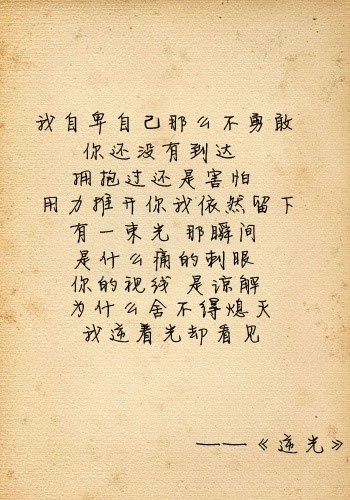 我自卑自己那么不勇敢
你还没有到达
拥抱过还是害怕
用力推开你我依然留下
有一束光 那瞬间
是什么痛的刺眼
你的视线 是谅解
为什么舍不得熄灭
我逆着光却看见
——《逆光》